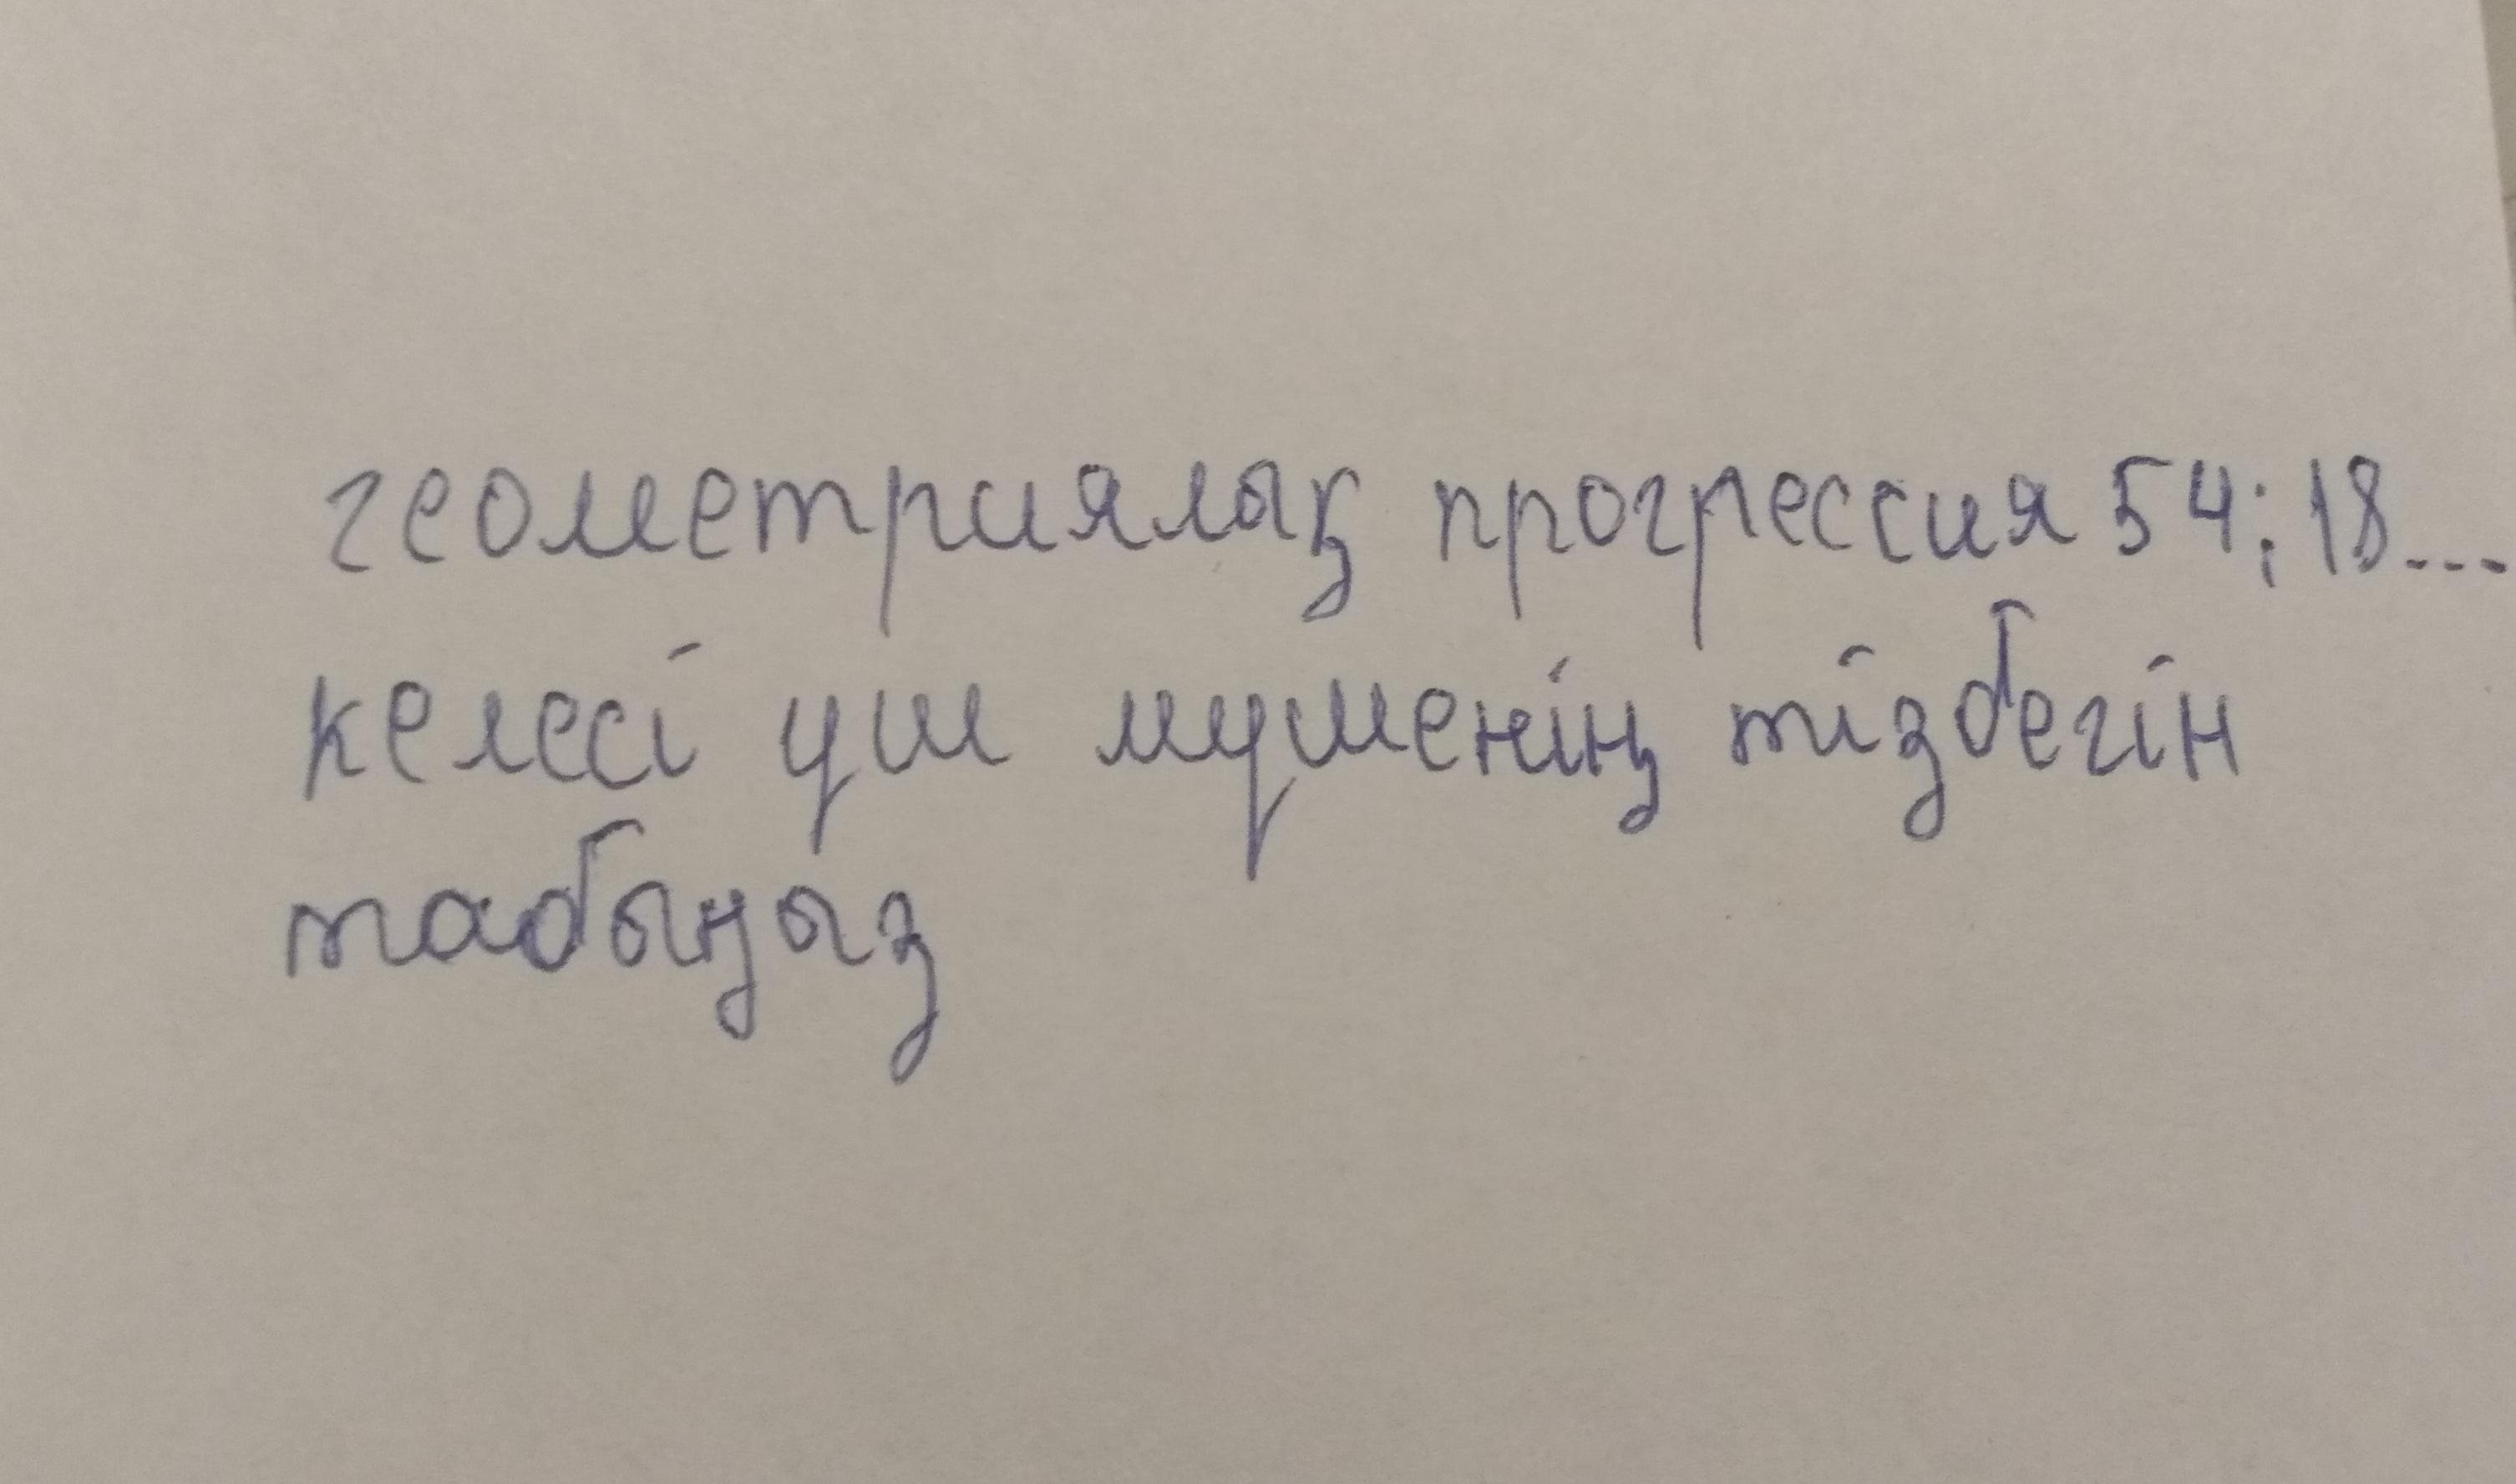 геометриялық прогрессия 54; 18...
келесі үш мүшенің тізбегін
табыңыз